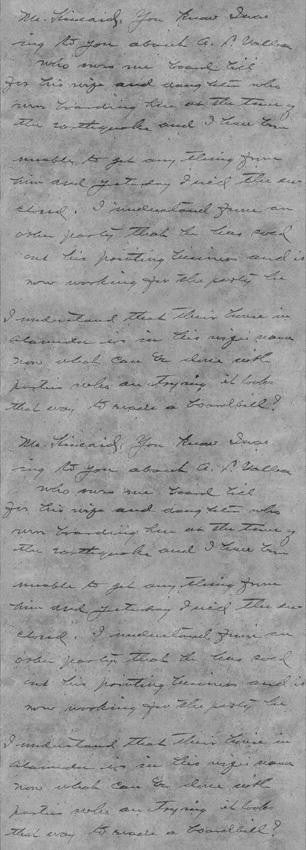 Mr. Kincaid, You know I was
ing to you about A. P. Vallea
who owes me board bill
for his wife and daughter who
were boarding here at the time of
the earthquake and I have been
unable to get any thing from
him and yesterday I the
closed. I understand from an
other party that he has sold
out his printing business and is
now working for the party he
I understand that their house in
Alameda is in his wife's name
now what can be done with
parties who are trying it looks
that way to evade a boardbill?
Mr. Kincaid, You know I was
ing to you about A. P. Vallea
who owes me board bill
for his wife and daughter who
were boarding here at the time of
the earthquake and I have been
unable to get any thing from
him and yesterday I the
closed. I understand from an
other party that he has sold
out his printing business and is
now working for the party he
I understand that their house in
Alameda is in his wife's name
now what can be done with
parties who are trying it looks
that way to evade a boardbill?